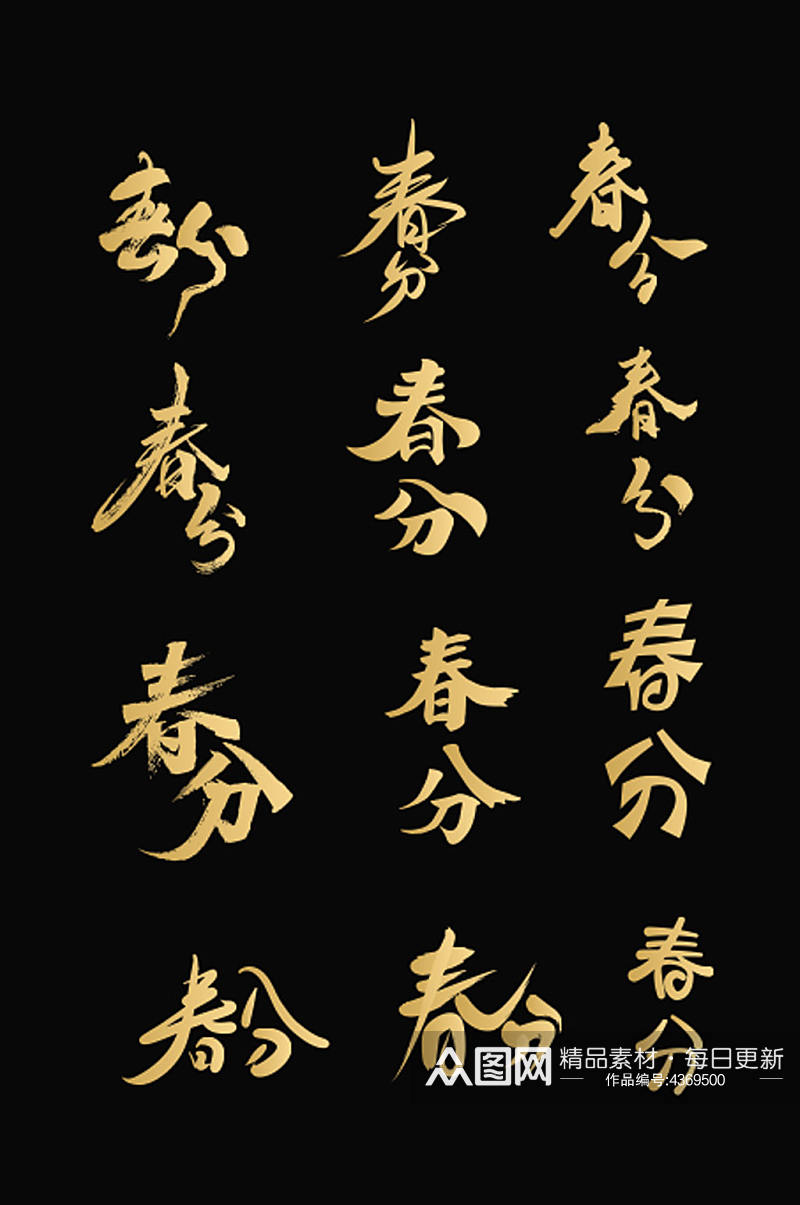 春分
春分
春分
春分
春分
春分
春分
春分
春分
春分
春分
春分
众图网
精品素材·每日更新
作品编号:4369500